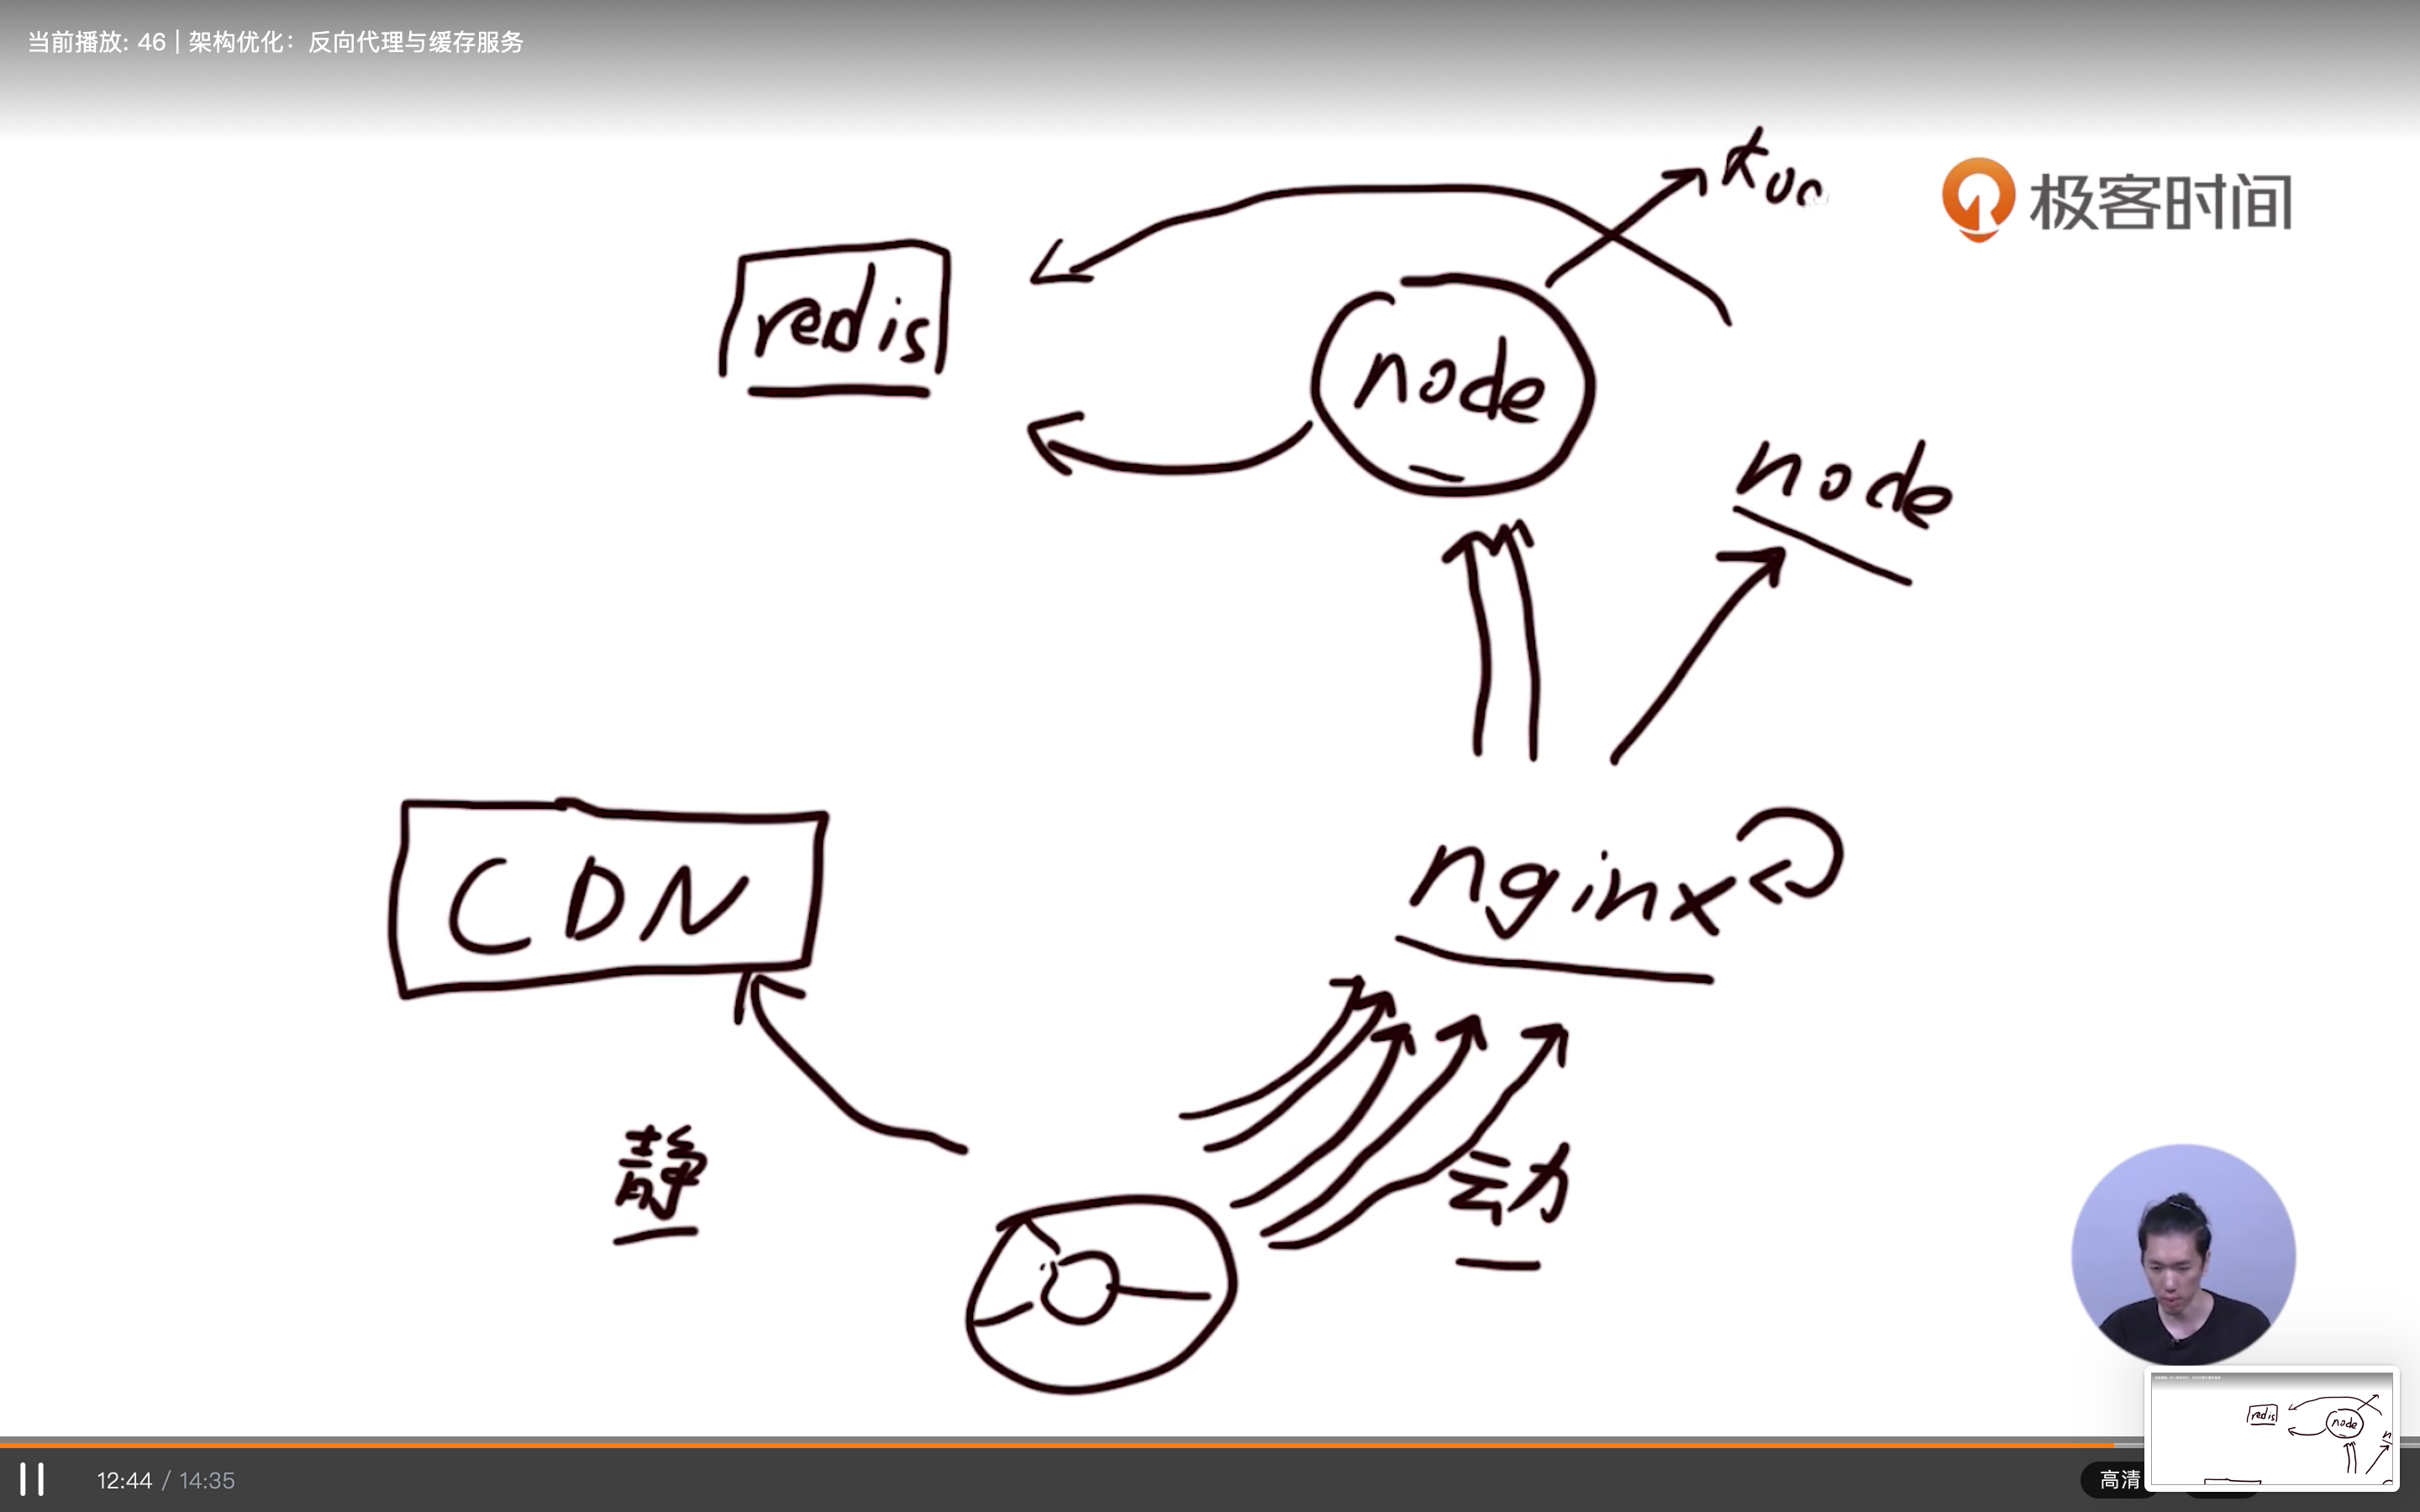 当前播放: 46 | 架构优化：反向代理与缓存服务
极客时间
redis
node
node
CDN
nginx
静
动
12:44 / 14:35
高清
redis
node